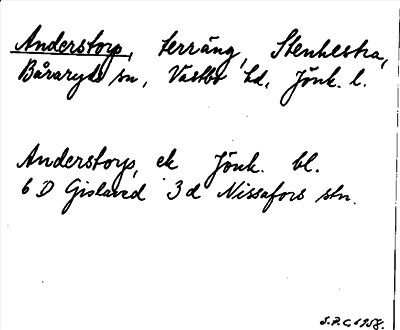 Anderstorp, terräng, Stenhestra,
Båraryds sn, Västbo hd, Jönk. l.
Anderstorp, ek Jönk. bl.
6 D Gislaved 3 d Nissafors stn.
S.P.C. 1958.